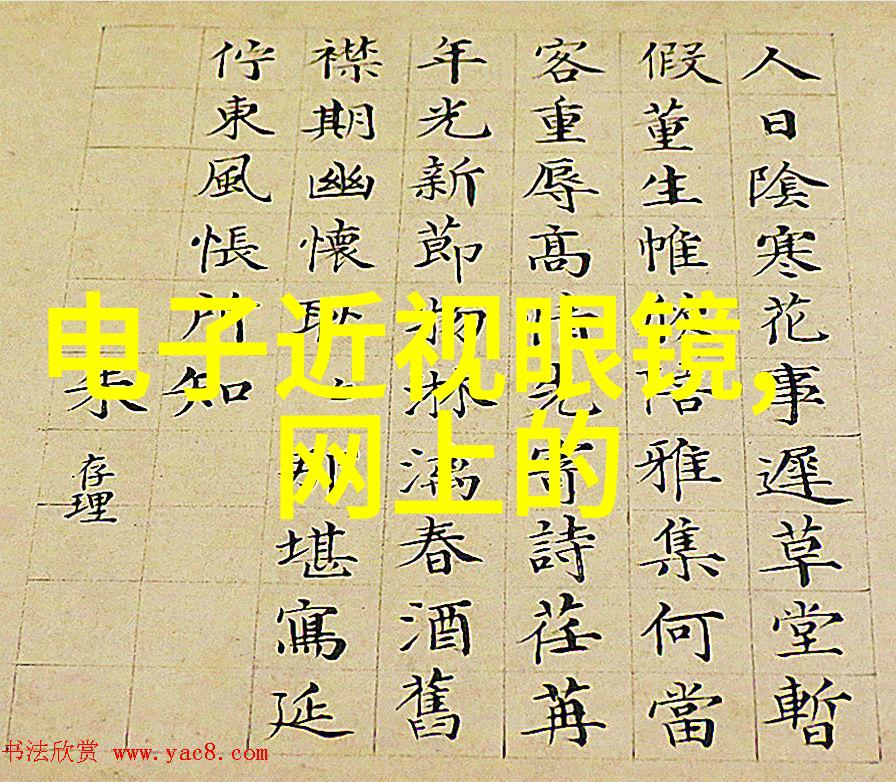 人日陰寒花事遲草堂暫
假董生帷雅集何當
客重辱高先寄詩荏苒
年光新節物淋漓春酒舊
襟期幽懷耿堪寫延
佇東風悵所知
朱存理
电子近视眼镜,
网上的
书法欣赏 www.yac8.com